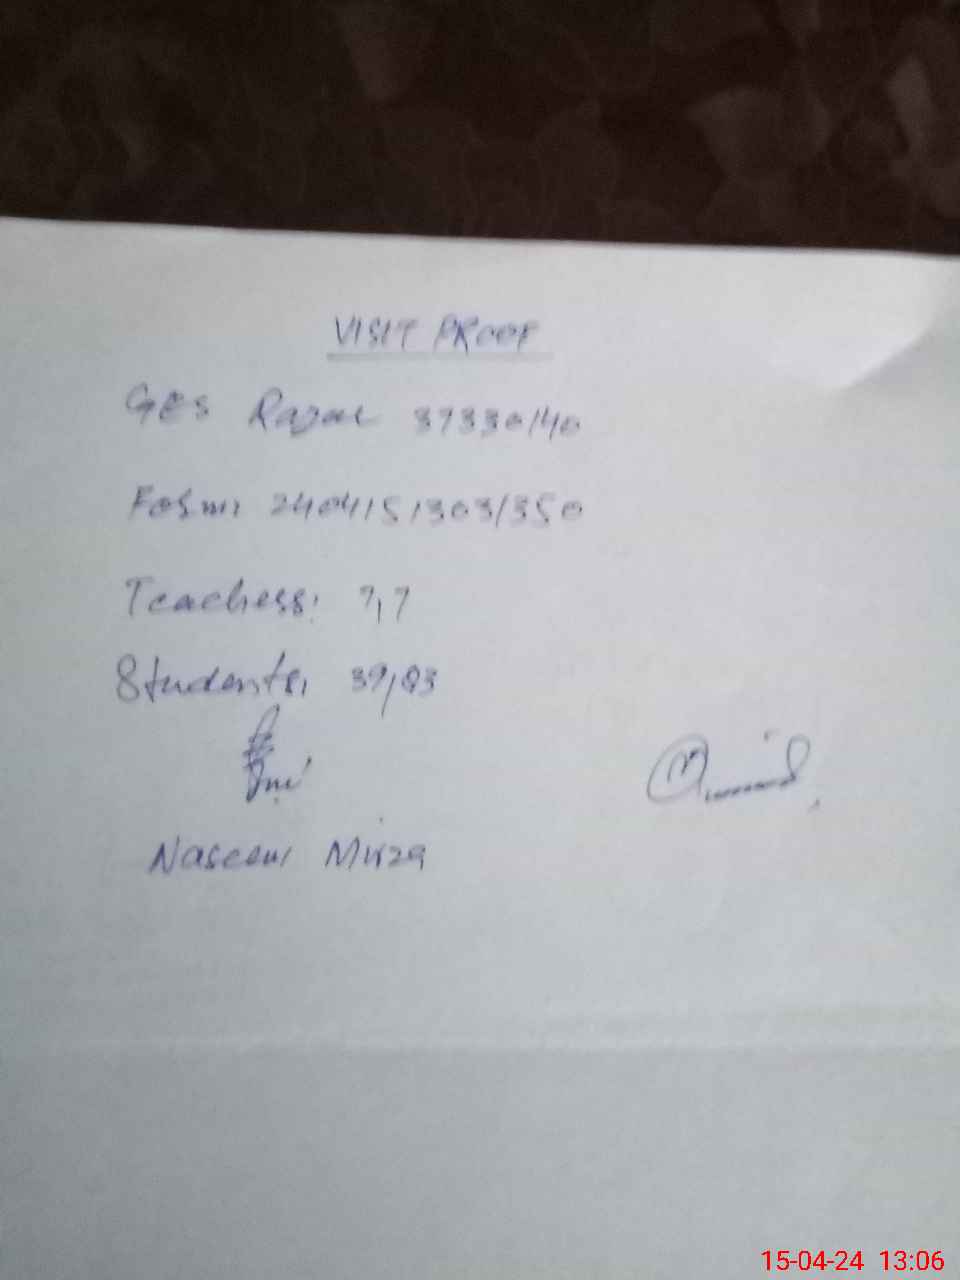 VISIT PROOF
GES Razal 37330140
Form: 2404151303/350
Teachers: 7,7
Students, 39,93
Naseem Mirza
15-04-24 13:06